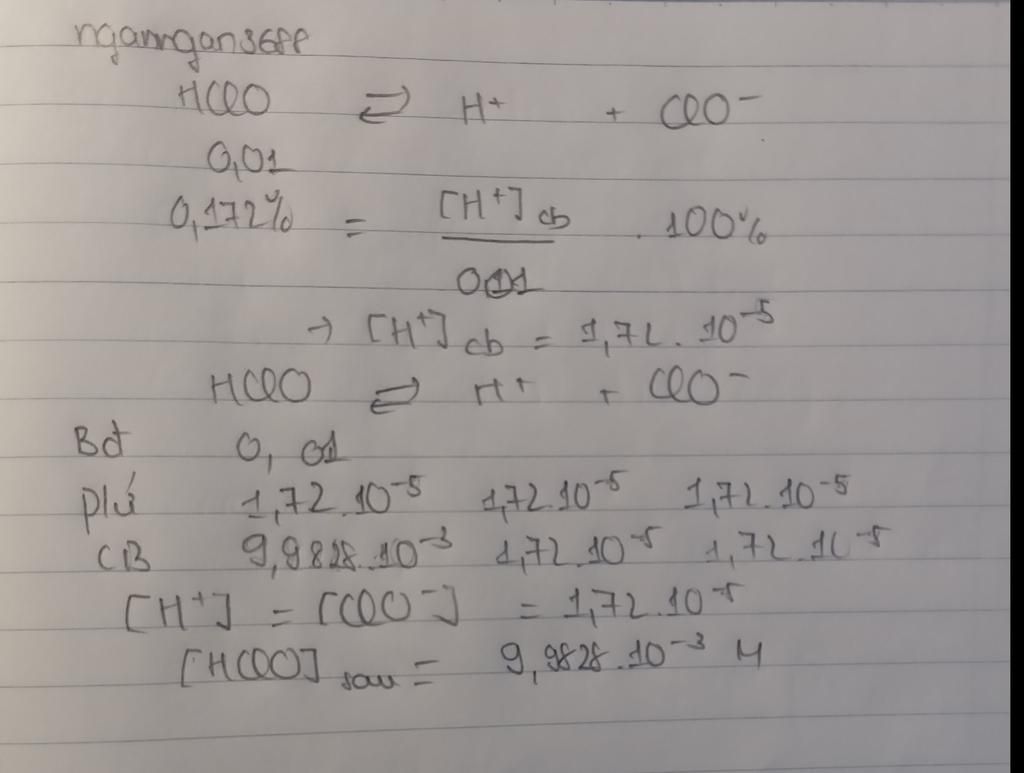 nganngan36pp
HClO ⇌ H⁺ + ClO⁻
0,01
0,172% = [H⁺]cb / 0,01 . 100%
→ [H⁺]cb = 1,72.10⁻⁵
HClO ⇌ H⁺ + ClO⁻
Bđ 0,01
plí 1,72.10⁻⁵ 1,72.10⁻⁵ 1,72.10⁻⁵
CB 9,9828.10⁻³ 1,72.10⁻⁵ 1,72.10⁻⁵
[H⁺] = [ClO⁻] = 1,72.10⁻⁵
[HClO]sau = 9,9828.10⁻³ M